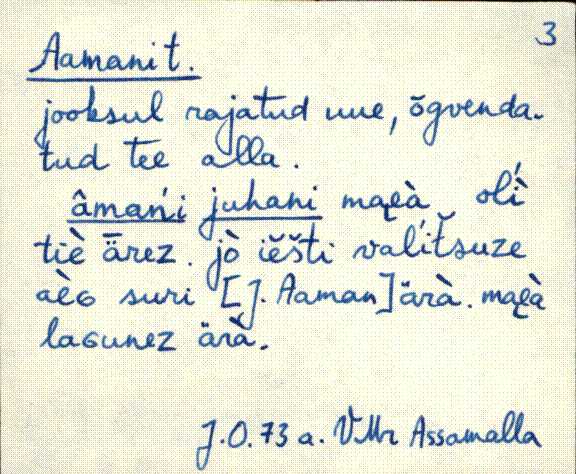 3
Aamanit.
jooksul rajatud uue, õgvenda-
tud tee alla.
âmańi juhani maɐà olì
tiè ārez. jò iěšti valítšuze
aèG suri [J. Aaman] ärà. maɐà
laGunez ärà.
J.O. 73 a. VMr Assamalla